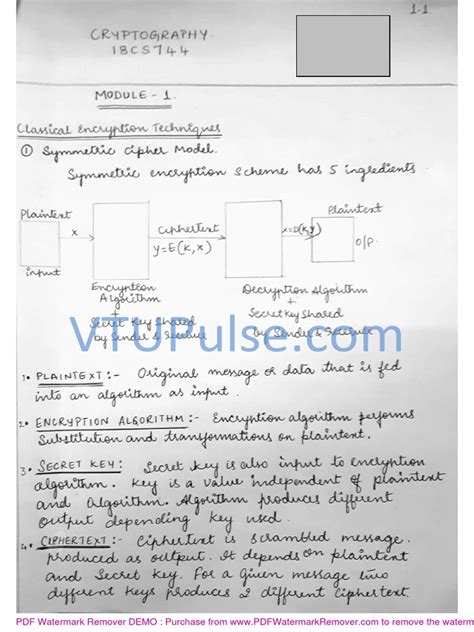 1-1
CRYPTOGRAPHY
18CS744
MODULE - 1.
Classical Encryption Techniques
① Symmetric Cipher Model.
Symmetric encryption scheme has 5 ingredients
Plaintext
Plaintext
x
ciphertext
y=E(k,x)
x=D(k,y)
O/P.
input
Encryption
Algorithm
+
Secret Key shared
by Sender & Receiver
Decryption Algorithm
+
Secret Key shared
by Sender & Receiver
VTUPulse.com
1. PLAINTEXT :- Original message or data that is fed
into an algorithm as input.
2. ENCRYPTION ALGORITHM :- Encryption algorithm performs
Substitution and transformations on plaintext.
3. SECRET KEY : Secret key is also input to encryption
algorithm. Key is a value independent of plaintext
and Algorithm. Algorithm produces different
output depending key used.
4. CIPHERTEXT :- Ciphertext is scrambled message
produced as output. It depends on plaintext
and Secret key. For a given message two
different keys produces 2 different Ciphertext.
PDF Watermark Remover DEMO : Purchase from www.PDFWatermarkRemover.com to remove the waterm